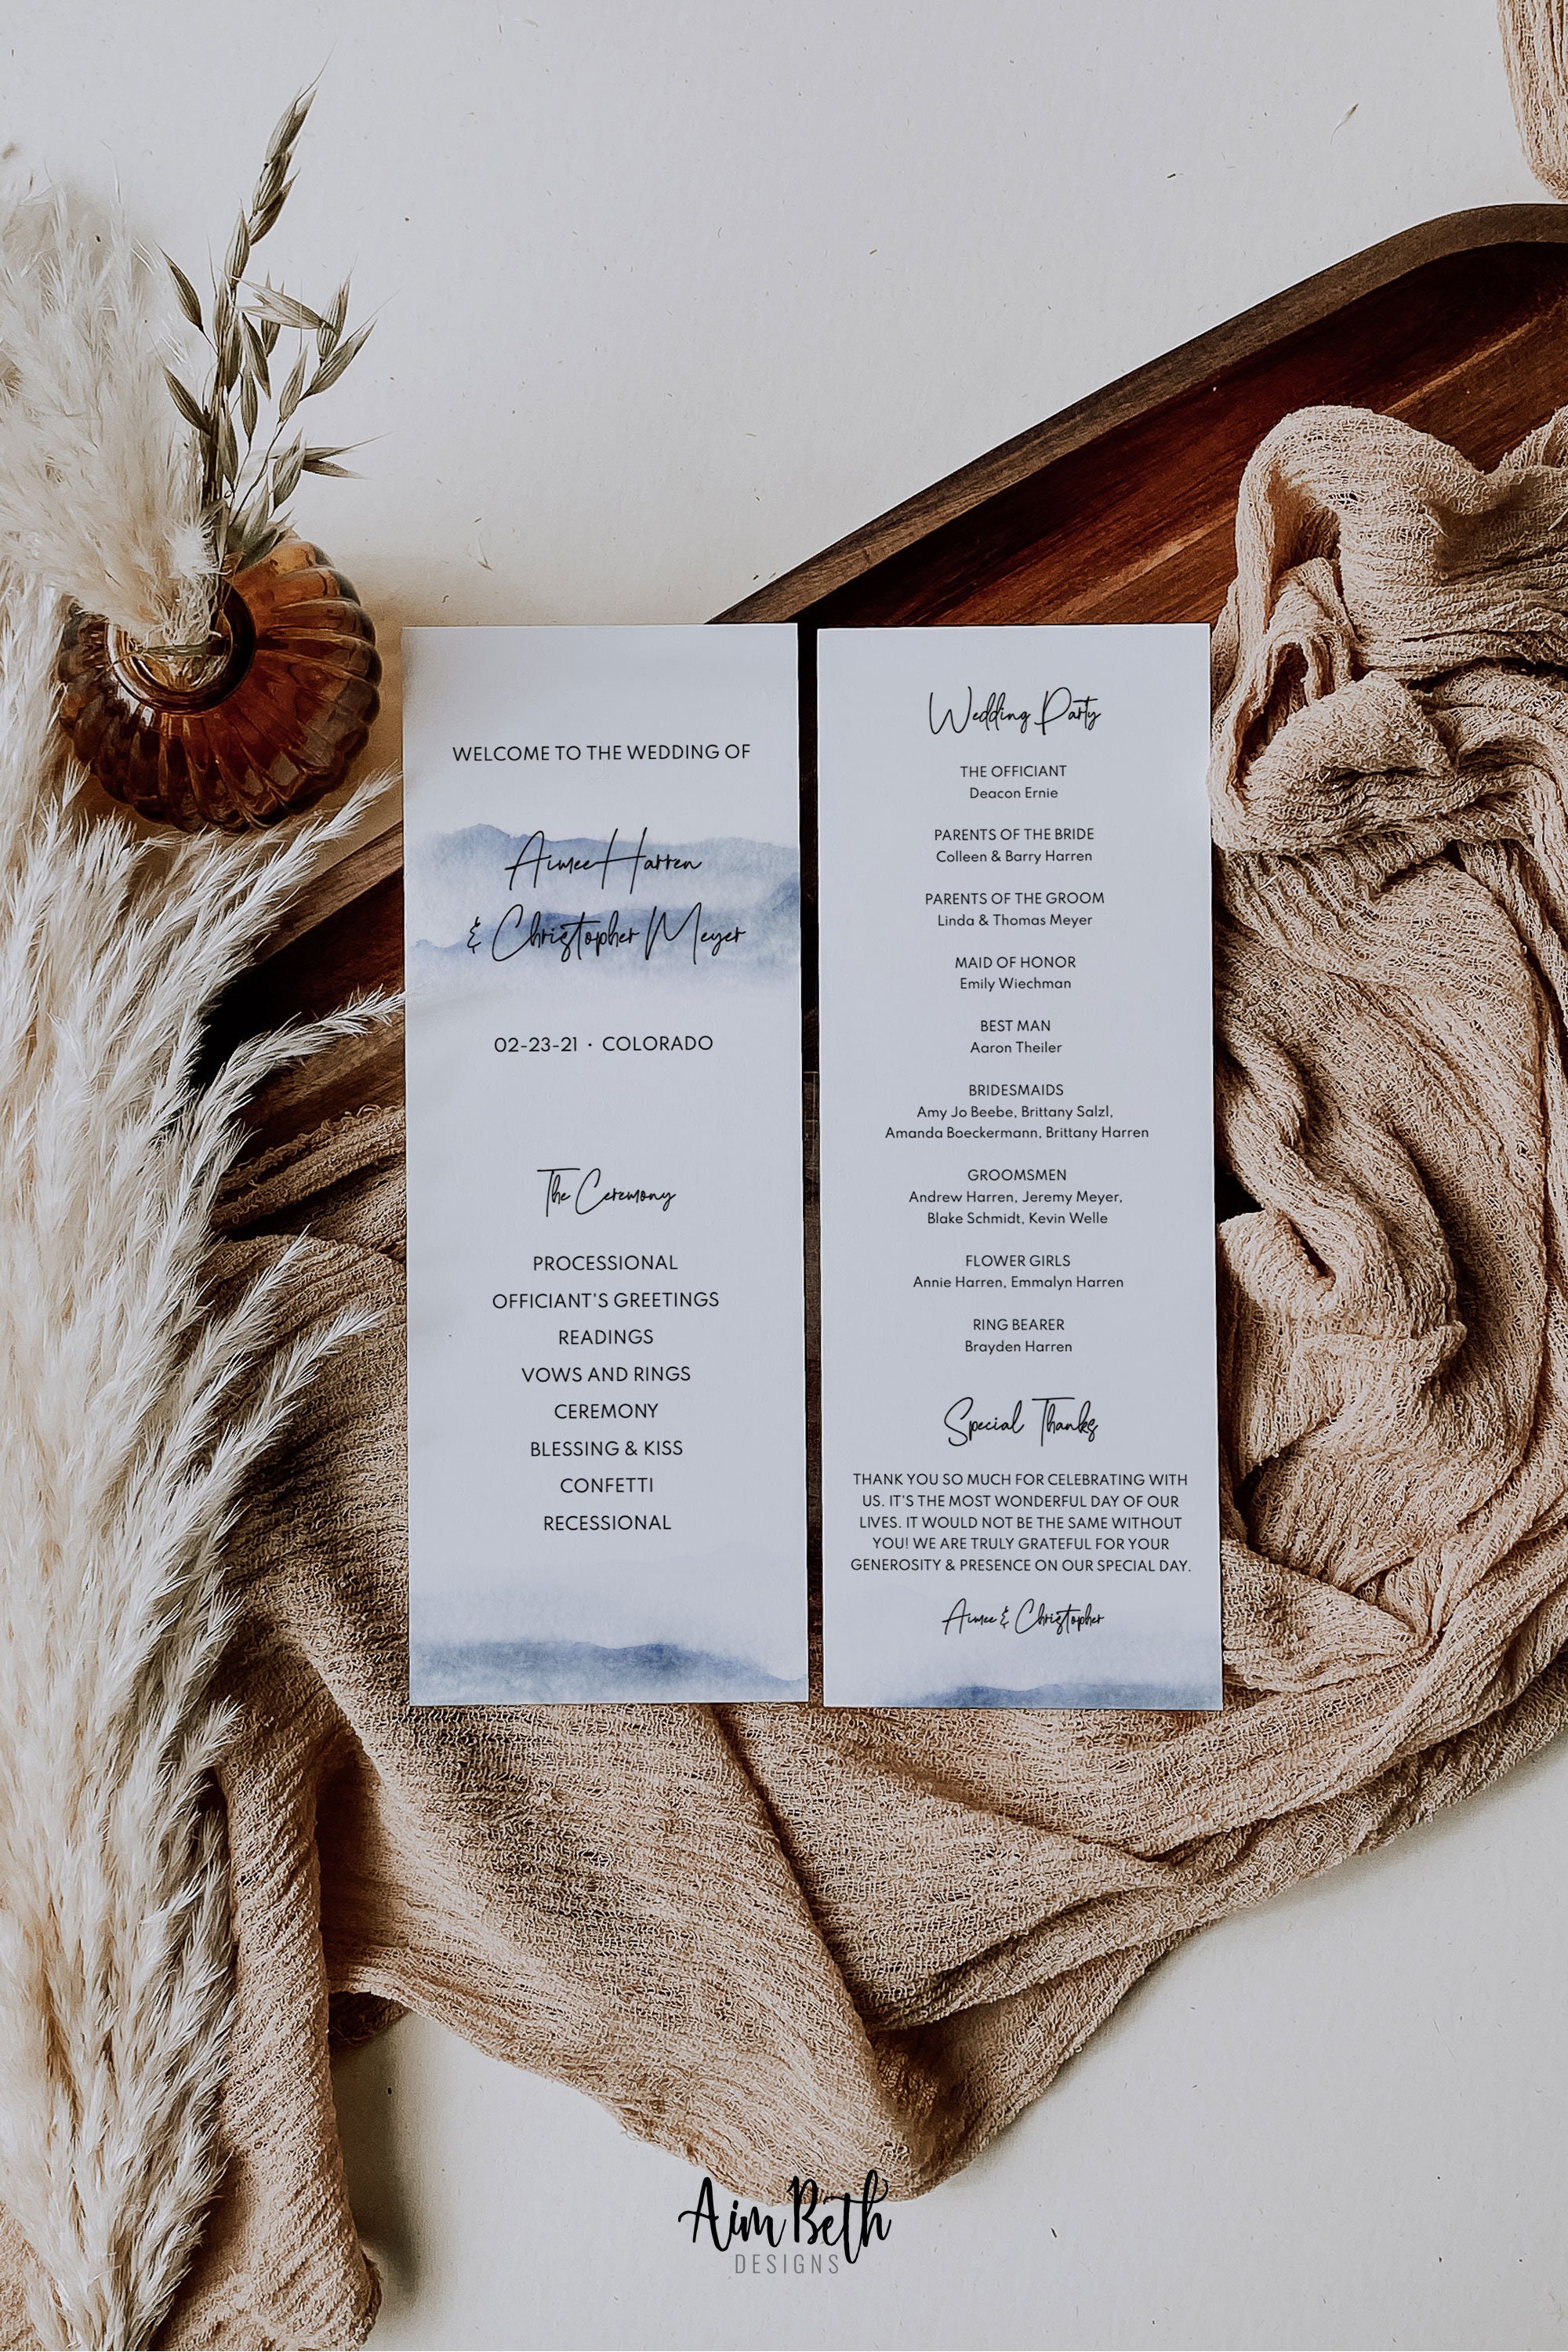 WELCOME TO THE WEDDING OF
Aimee Harren
& Christopher Meyer
02-23-21 · COLORADO
The Ceremony
PROCESSIONAL
OFFICIANT'S GREETINGS
READINGS
VOWS AND RINGS
CEREMONY
BLESSING & KISS
CONFETTI
RECESSIONAL
Wedding Party
THE OFFICIANT
Deacon Ernie
PARENTS OF THE BRIDE
Colleen & Barry Harren
PARENTS OF THE GROOM
Linda & Thomas Meyer
MAID OF HONOR
Emily Wiechman
BEST MAN
Aaron Theiler
BRIDESMAIDS
Amy Jo Beebe, Brittany Salzl,
Amanda Boeckermann, Brittany Harren
GROOMSMEN
Andrew Harren, Jeremy Meyer,
Blake Schmidt, Kevin Welle
FLOWER GIRLS
Annie Harren, Emmalyn Harren
RING BEARER
Brayden Harren
Special Thanks
THANK YOU SO MUCH FOR CELEBRATING WITH
US. IT'S THE MOST WONDERFUL DAY OF OUR
LIVES. IT WOULD NOT BE THE SAME WITHOUT
YOU! WE ARE TRULY GRATEFUL FOR YOUR
GENEROSITY & PRESENCE ON OUR SPECIAL DAY.
Aimee & Christopher
Aim Beth
DESIGNS